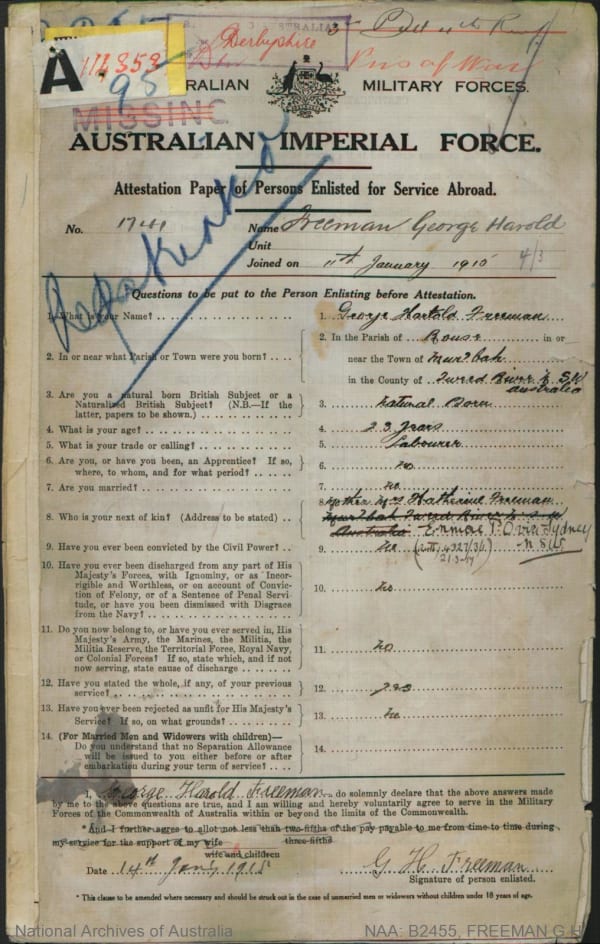 AUSTRALIA
Derbyshire
A
112858
95
Pris of War
AUSTRALIAN MILITARY FORCES.
MISSING
AUSTRALIAN IMPERIAL FORCE.
Attestation Paper of Persons Enlisted for Service Abroad.
No. Name Freeman George Harold
Unit
Joined on 11th January 1915 4/3
Questions to be put to the Person Enlisting before Attestation.
1. What is your Name? 1. George Harold Freeman
2. In or near what Parish or Town were you born? 2. In the Parish of Rous in or
near the Town of Mur'bah
in the County of Tweed River N SW
Australia
3. Are you a natural born British Subject or a
Naturalized British Subject? (N.B.—If the
latter, papers to be shown.) 3. Natural Born
4. What is your age? 4. 23 years
5. What is your trade or calling? 5. Labourer
6. Are you, or have you been, an Apprentice? If so,
where, to whom, and for what period? 6. No
7. Are you married? 7. No
8. Who is your next of kin? (Address to be stated) 8. Mother Mrs Katherine Freeman
Mur'bah Tweed River N.S.W
Australia Sydney
N SW
9. Have you ever been convicted by the Civil Power? 9. No
10. Have you ever been discharged from any part of His
Majesty's Forces, with Ignominy, or as Incor-
rigible and Worthless, or on account of Convic-
tion of Felony, or of a Sentence of Penal Servi-
tude, or have you been dismissed with Disgrace
from the Navy? 10. No
11. Do you now belong to, or have you ever served in, His
Majesty's Army, the Marines, the Militia, the
Militia Reserve, the Territorial Force, Royal Navy,
or Colonial Forces? If so, state which, and if not
now serving, state cause of discharge 11. No
12. Have you stated the whole, if any, of your previous
service? 12. yes
13. Have you ever been rejected as unfit for His Majesty's
Service? If so, on what grounds? 13. No
14. (For Married Men and Widowers with children)—
Do you understand that no Separation Allowance
will be issued to you either before or after
embarkation during your term of service? 14.
I, George Harold Freeman do solemnly declare that the above answers made
by me to the above questions are true, and I am willing and hereby voluntarily agree to serve in the Military
Forces of the Commonwealth of Australia within or beyond the limits of the Commonwealth.
*And I further agree to allot not less than two-fifths of the pay payable to me from time to time during
three-fifths
my service for the support of my wife
wife and children
Date 14th Jany 1915 G H Freeman
Signature of person enlisted.
* This clause to be amended where necessary and should be struck out in the case of unmarried men or widowers without children under 18 years of age.
National Archives of Australia NAA: B2455, FREEMAN G H